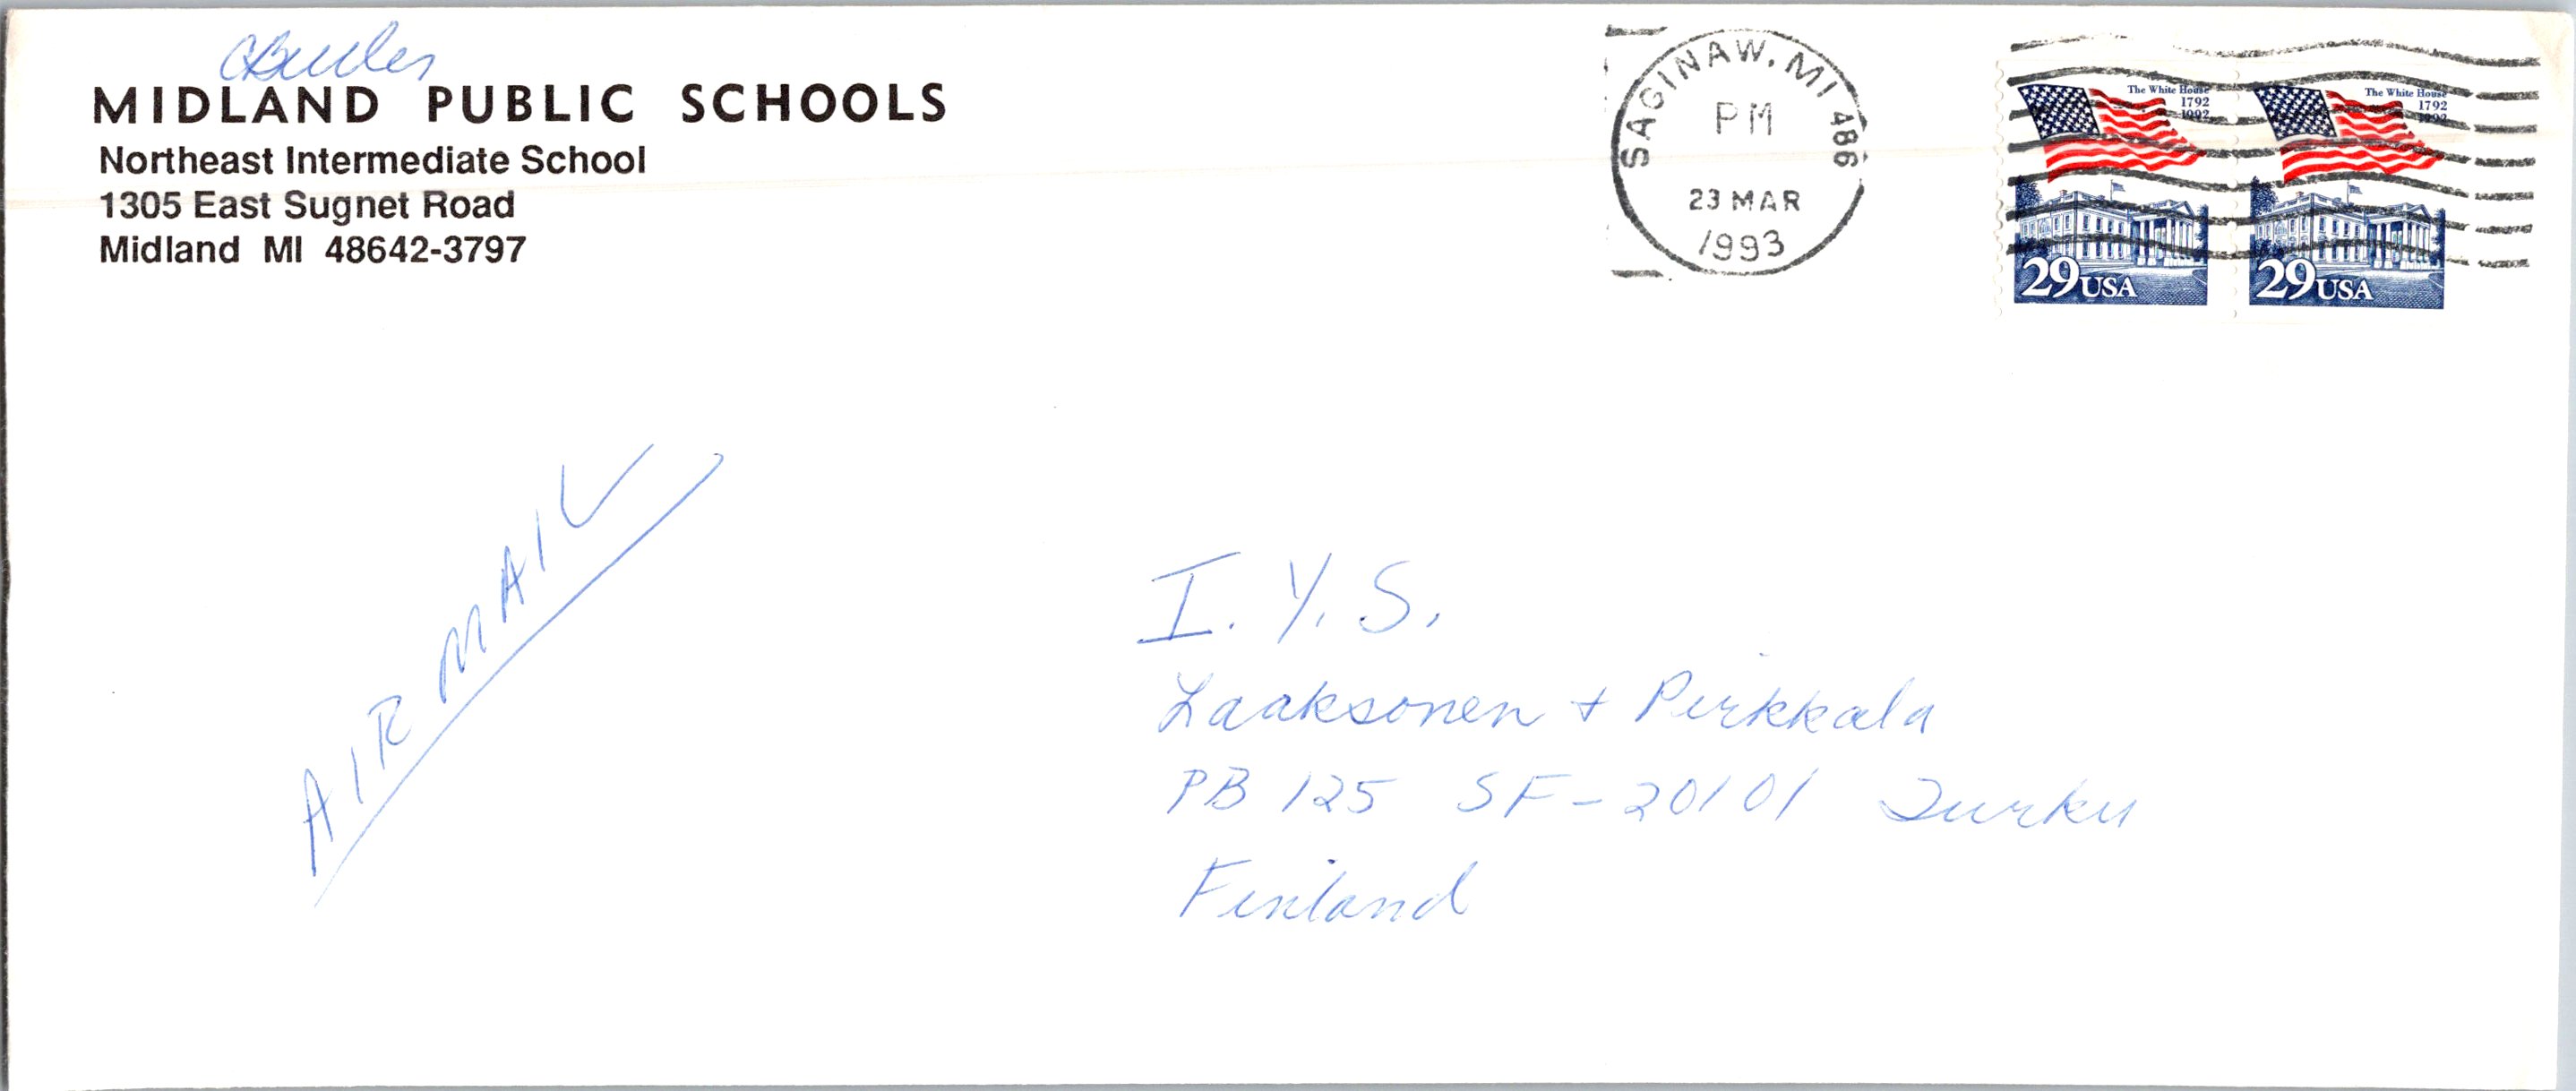 MIDLAND PUBLIC SCHOOLS
Northeast Intermediate School
1305 East Sugnet Road
Midland MI 48642-3797
SAGINAW, MI 486
PM
23 MAR
1993
The White House
1792
1992
29 USA
The White House
1792
1992
29 USA
AIR MAIL
I.Y.S.
Laaksonen + Pirkkala
PB 125 SF-20101 Turku
Finland